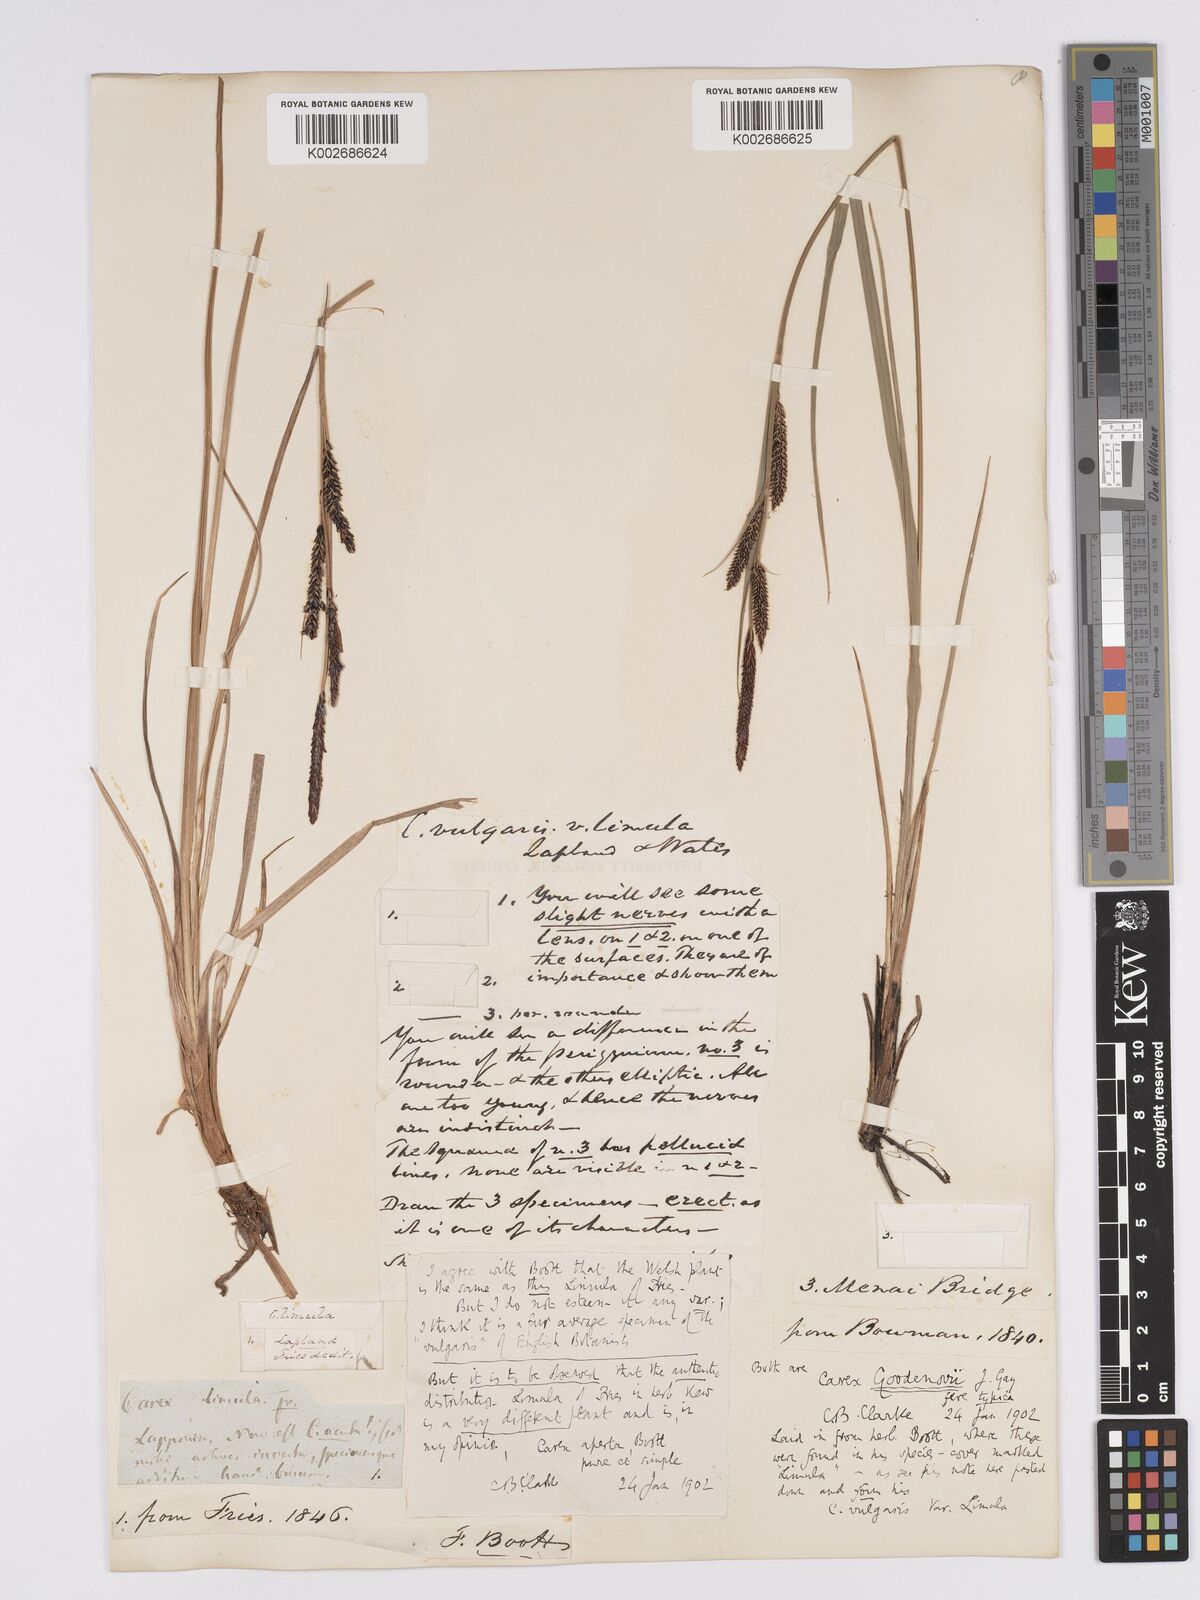 ROYAL BOTANIC GARDENS KEW
K002686624
ROYAL BOTANIC GARDENS KEW
K002686625
C. vulgaris. v. limula
Lapland & Wales
1.
1. You will see some
slight nerves with a
lens, on 1 & 2. on one of
the surfaces. They are of
2
2. importance & show them
3. per. rounder
You will see a difference in the
form of the perigynium. no. 3 is
rounder - & the others elliptic. All
are too young, & hence the nerves
are indistinct -
The squama of n. 3 has pellucid
lines. None are visible in n 1 & 2 -
Draw the 3 specimens - erect. as
it is one of its characters -
I agree with Boott that the Welsh plant
is the same as this Limula of Fries -
But I do not esteem it any var.;
I think it is a fair average specimen of the
"vulgaris" of English Botanists
But it is to be observed that the authentic
distribution Limula of Fries in herb Kew
is a very different plant and is, in
my opinion, Carex aperta, Boott
pure et simple
CB Clarke 24 Jan 1902
F. Boott
C. limula
1. Lapland
Fries dedit.
Carex limula. Fr.
Lapponia. Non est C.
mihi
1.
1. from Fries. 1846.
3.
3. Menai Bridge.
from Bowman. 1840.
Both are
Carex Goodenovii J. Gay
fere typica
CB. Clarke 24 Jan 1902
Laid in from herb Boott, where these
were found in his species-cover marked
"Limula" - as see his note here pasted
down and form his
C. vulgaris Var. Limula
centimeters
inches
M001007
Don Williams
Royal Botanic Gardens
Kew
copyright reserved
0 1 2 3 4 5 6 7 8 9 10
cm